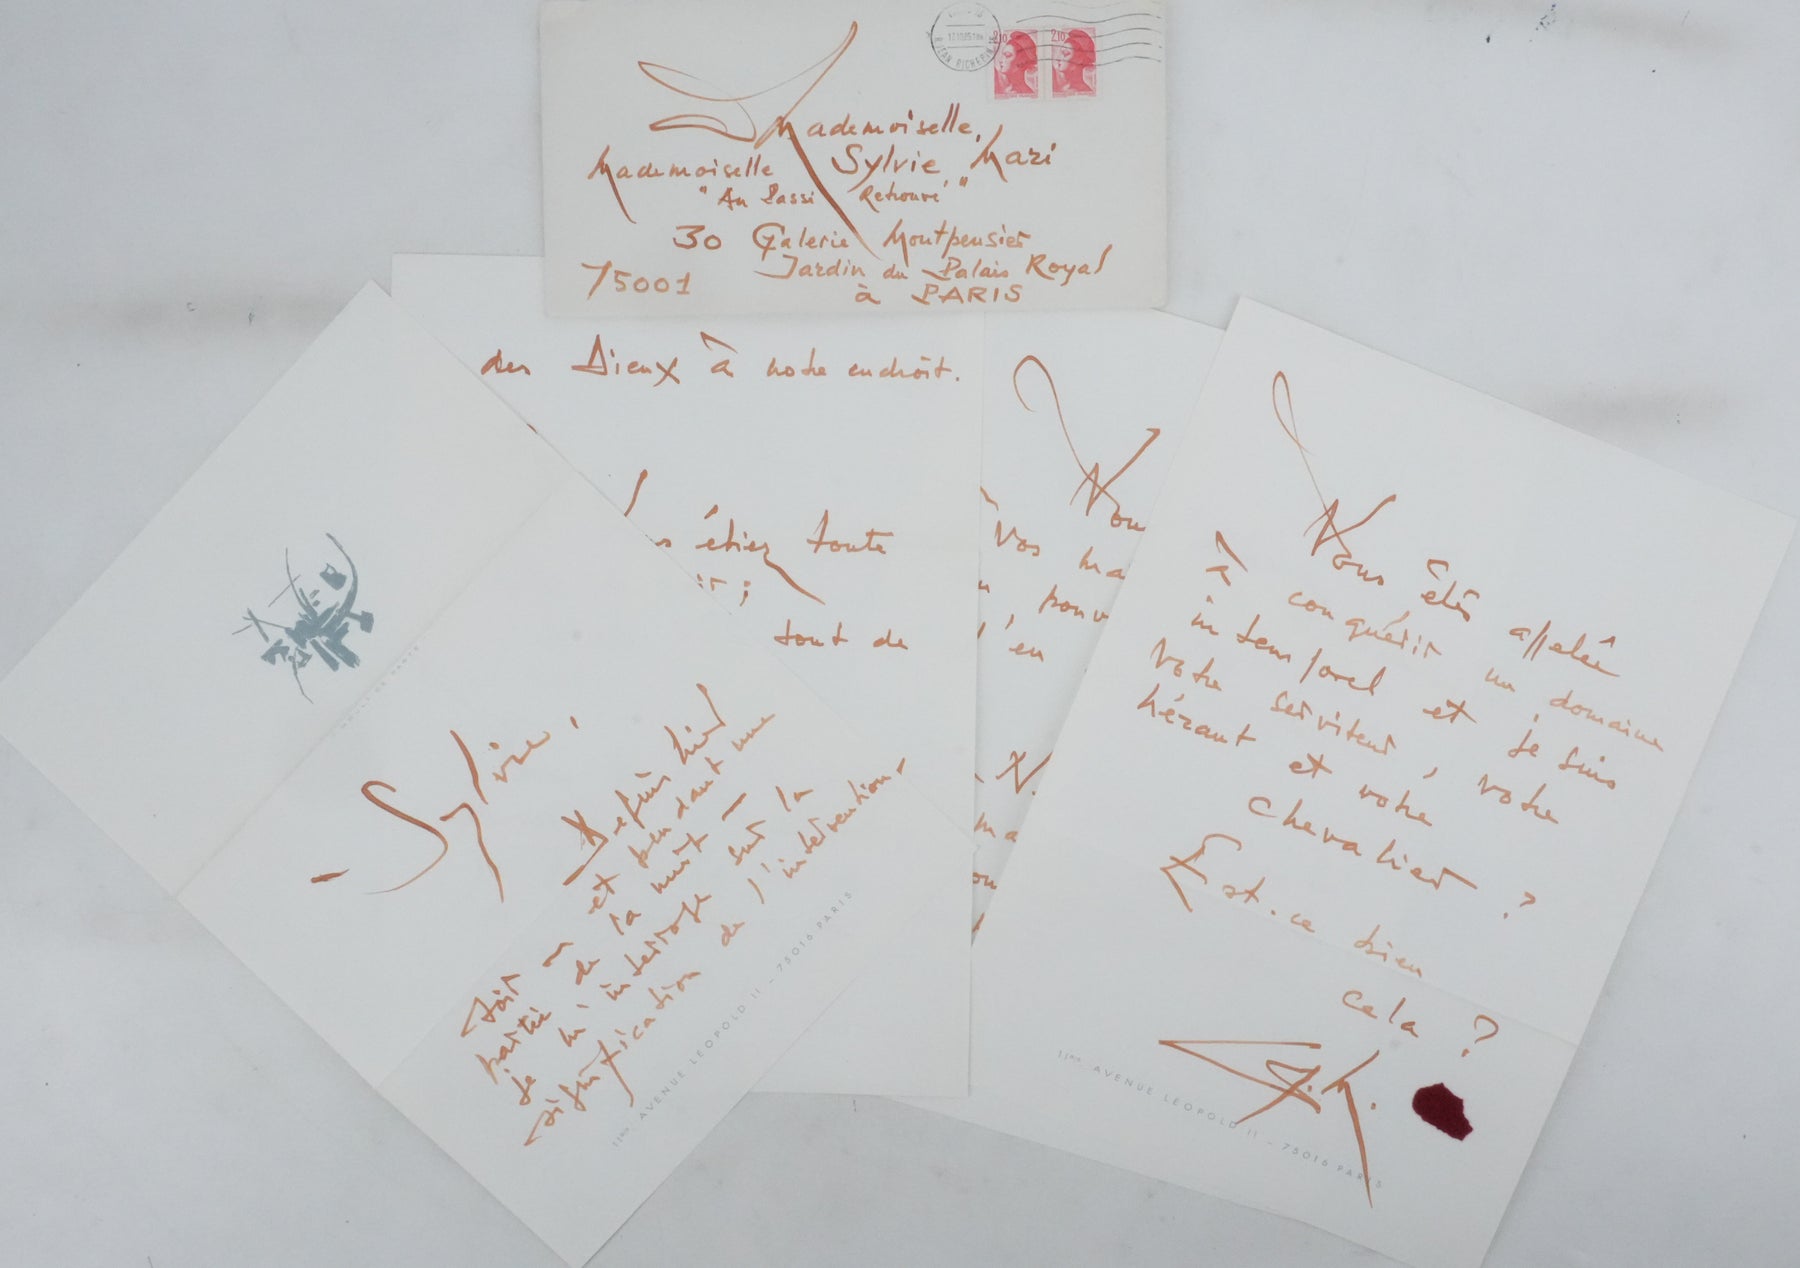 2,10
2,10
JEAN RICHEPIN
Mademoiselle,
Mademoiselle Sylvie Mazi
"Au Passé Retrouvé"
30 Galerie Montpensier
Jardin du Palais Royal
75001 à PARIS
des Dieux à notre endroit.
étiez toute
tout de
- Sylvie,
Depuis hier
et pendant une
soit on
partie de la nuit -
je m'interroge sur la
signification de l'intervention,
11 BIS, AVENUE LEOPOLD II - 75016 PARIS
Vos ma
pouv
l'en
N.
ma
Vous êtes appelée
à conquérir un domaine
intemporel et je suis
votre serviteur, votre
héraut et votre
chevalier ?
Est-ce bien
cela ?
G.M.
11 BIS, AVENUE LEOPOLD II - 75016 PARIS